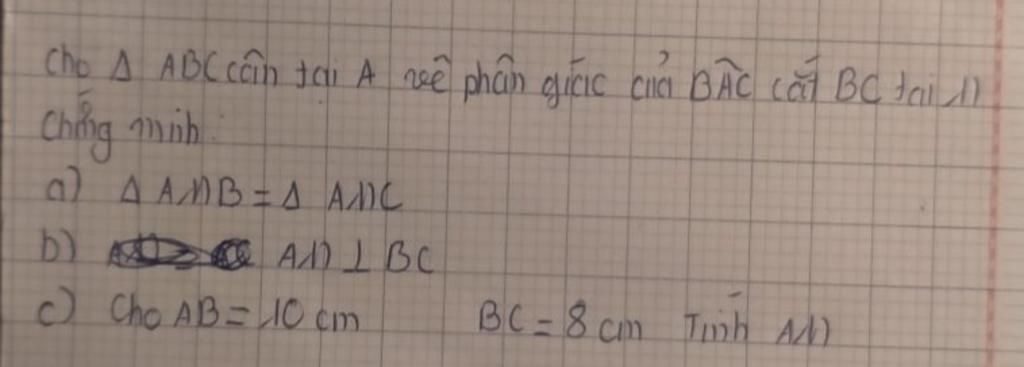 Cho Δ ABC cân tại A vẽ phân giác của BÂC cắt BC tại M
Chứng minh:
a) Δ AMB = Δ AMC
b) AM ⊥ BC
c) Cho AB = 10 cm BC = 8 cm Tính AM